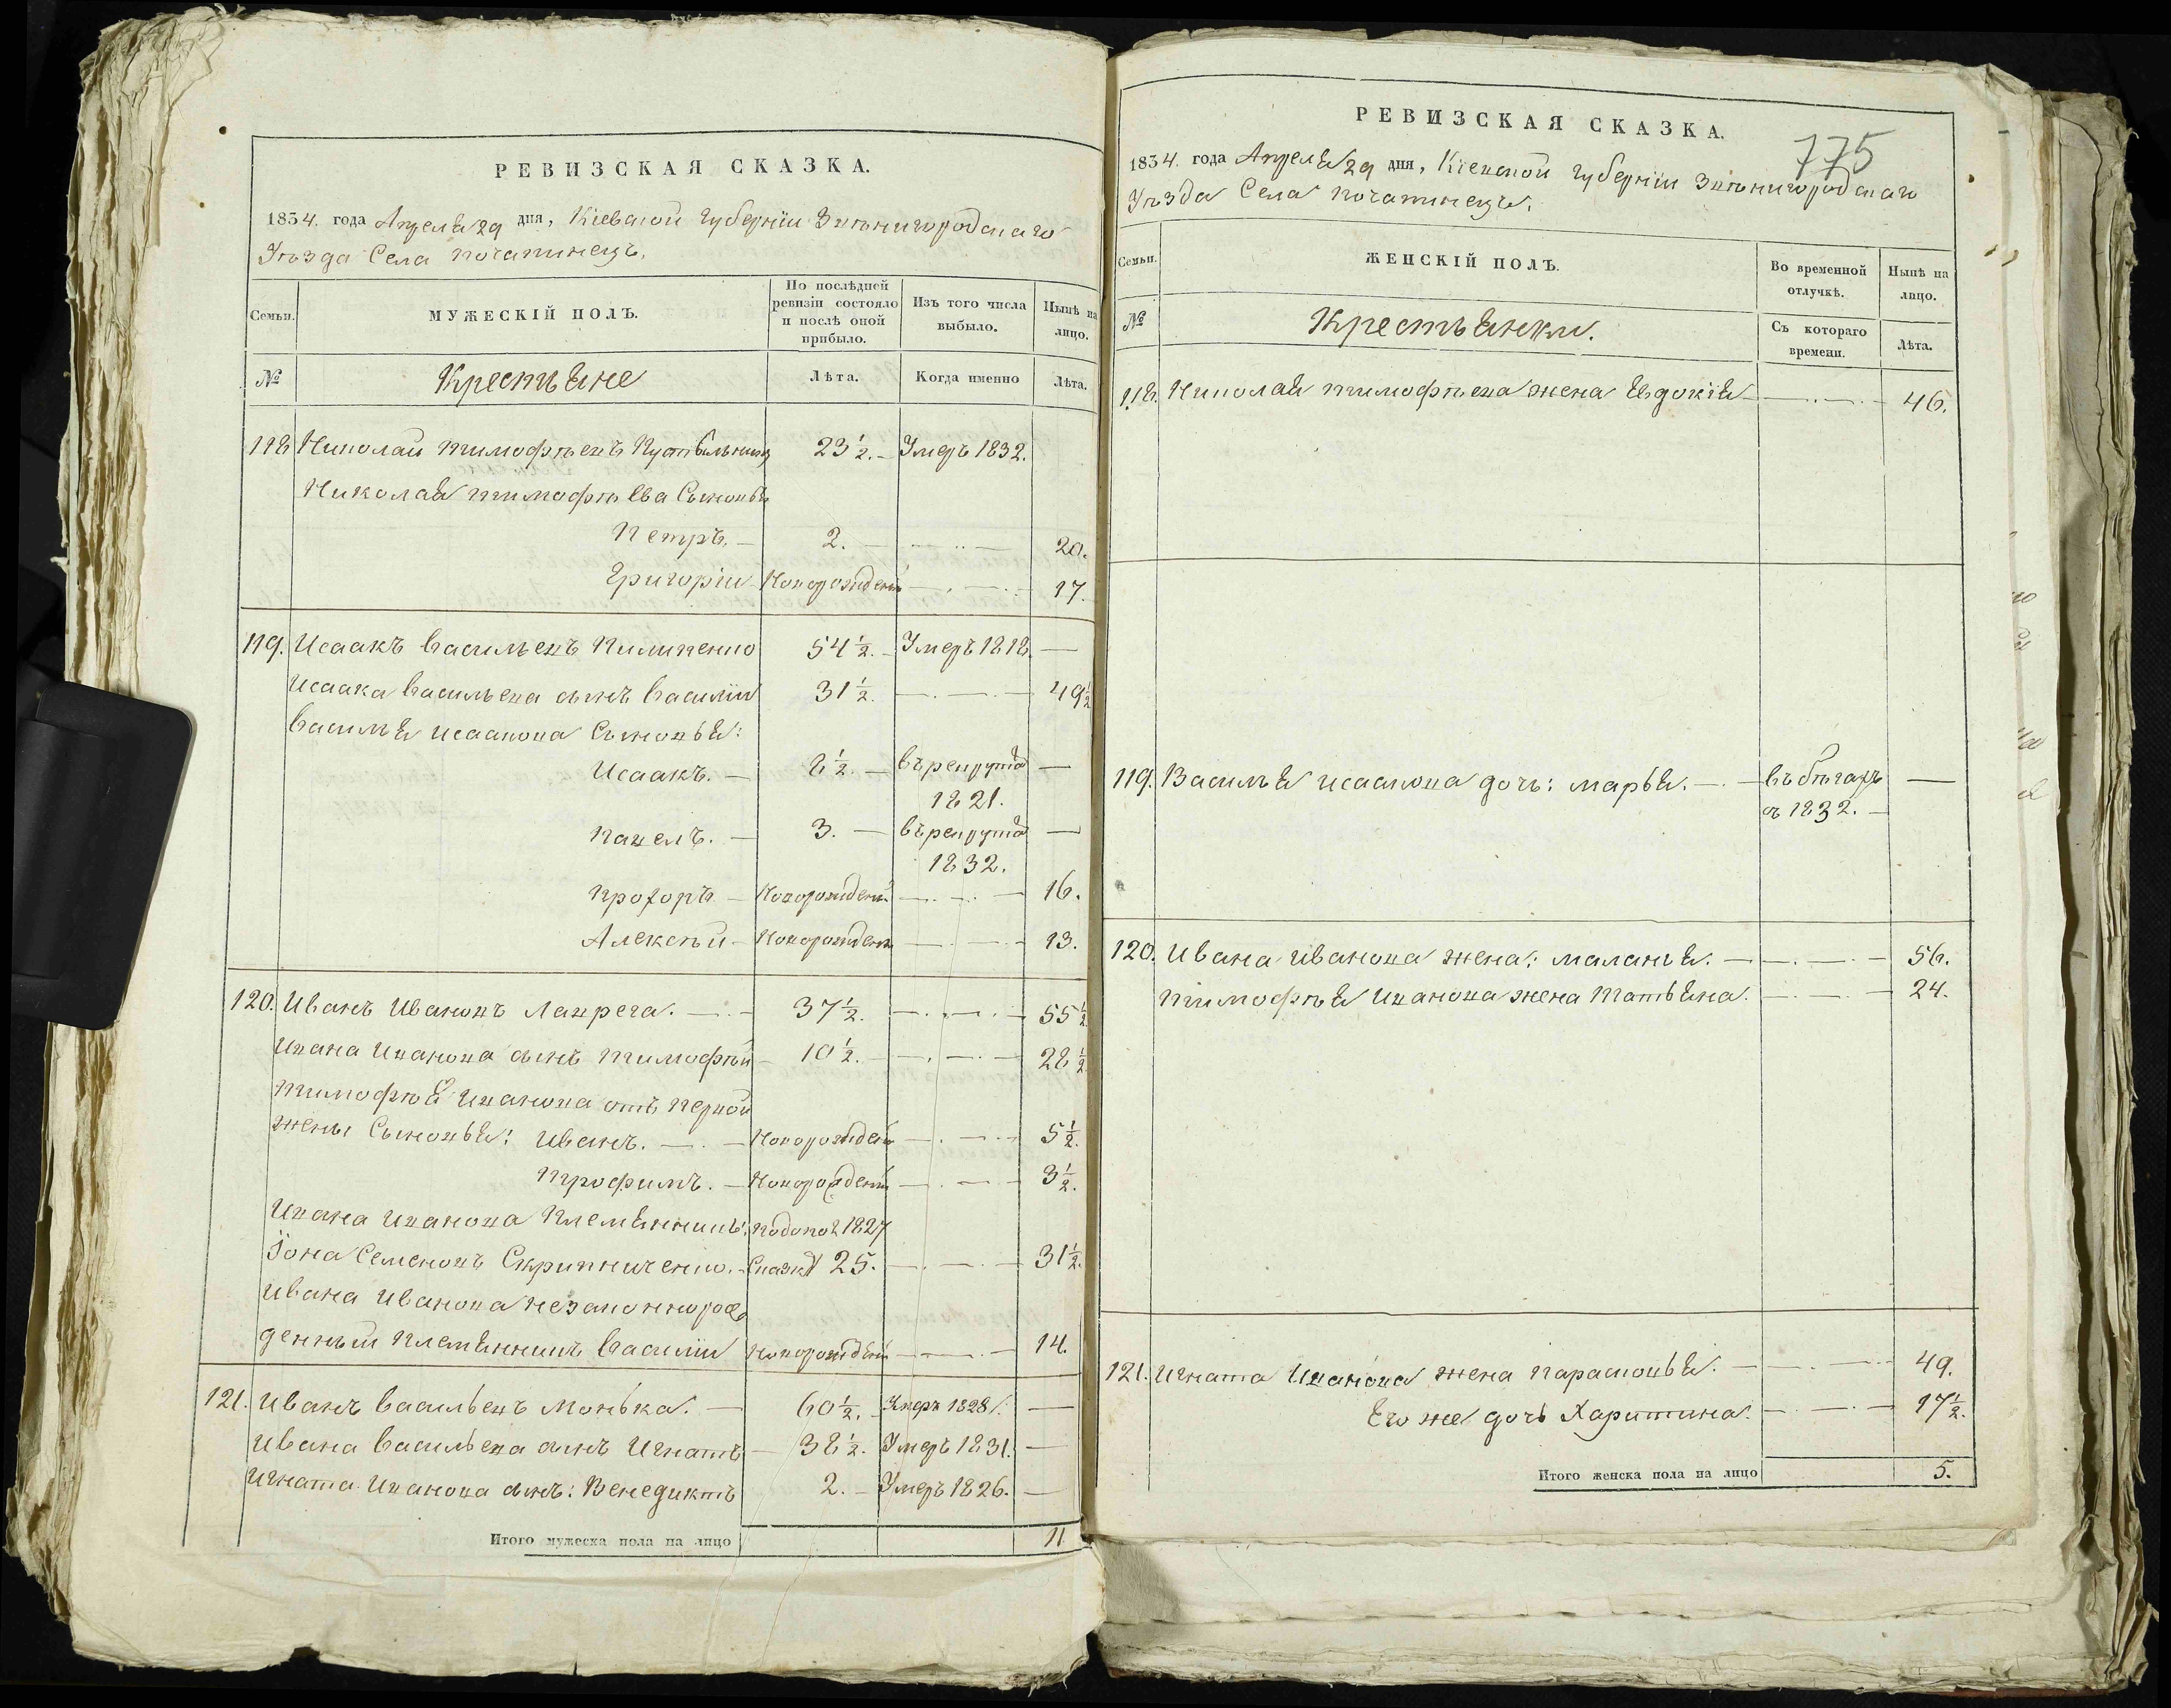 РЕВИЗСКАЯ СКАЗКА.
1834. года Апреля 29 дня, Кіевской губерніи Звѣнигородскаго
Уѣзда Села Почапинецъ.
Семьи.
МУЖЕСКІЙ ПОЛЪ.
По послѣдней ревизіи состояло и послѣ оной прибыло.
Изъ того числа выбыло.
Нынѣ на лицо.
№ Крестьяне Лѣта. Когда именно Лѣта.
118 Николай Тимофѣевъ 23 ½. Умеръ 1832.
Николая Тимофѣева Сыновья
Петръ. 2. 20.
Григорій Новорожденъ 17.
119. Исаакъ Васильевъ Пилипенко 54 ½. Умеръ 1818.
Исаака Васильева сынъ Василій 31 ½. 49 ½
Василья Исаакова Сыновья:
Исаакъ. 8 ½. въ рекрута
1821.
Павелъ. 3. въ рекрута
1832.
Прохоръ Новорожденъ 16.
Алексѣй Новорожденъ 13.
120. Иванъ Ивановъ Лаврега. 37 ½. 55 ½
Ивана Иванова сынъ Тимофѣй 10 ½. 28 ½
Тимофѣя Иванова отъ первой
жены Сыновья: Иванъ. Новорожден 5 ½.
Трофимъ. Новорожденъ 3 ½.
Ивана Иванова Племянникъ: 1827
Іона Семеновъ Скрипниченко. Сказкѣ 25. 31 ½.
Ивана Иванова незаконнорож
денный Племянникъ Василій Новорожденъ 14.
121. Иванъ Васильевъ Монька. 60 ½. Умеръ 1828.
Ивана Васильева сынъ Игнатъ 38 ½. Умеръ 1831.
Игната Иванова сынъ: Венедиктъ 2. Умеръ 1826.
Итого мужеска пола на лицо 11
775
РЕВИЗСКАЯ СКАЗКА.
1834. года Апреля 29 дня, Кіевской губерніи Звѣнигородскаго
Уѣзда Села Почапинецъ.
Семьи.
ЖЕНСКІЙ ПОЛЪ.
Во временной отлучкѣ.
Нынѣ на лицо.
№ Крестьянки. Съ котораго времени. Лѣта.
118. Николая Тимофѣева жена Евдокія 46.
119. Василья Исаакова дочь: Марья. въ бѣгахъ
съ 1832.
120. Ивана Иванова жена: Маланья. 56.
Тимофѣя Иванова жена Татьяна. 24.
121. Игната Иванова жена Парасковья. 49.
Его же дочь Харитина. 17 ½.
Итого женска пола на лицо 5.